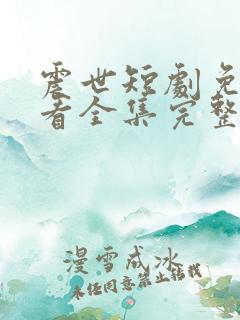 震世短劇免
看全集完整
漫雪成冰
未经同意禁止转载